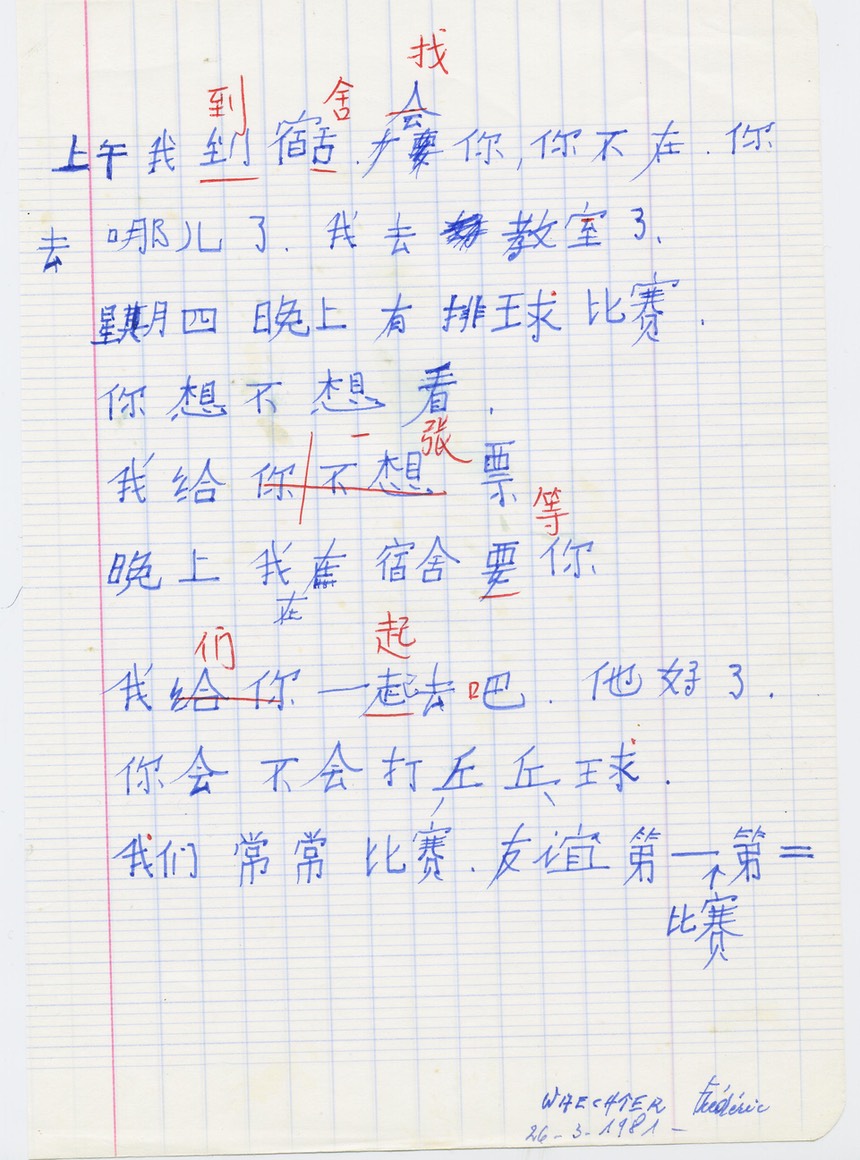 找
到 舍 会
上午我到宿舌.要你,你不在.你
去哪儿了.我去教室了.
星期四晚上有排球比赛.
你想不想看.
一张
我给你不想票
等
晚上我宿舍要你
在
们 起
我给你一起去吧.他好了.
你会不会打乒乓球.
我们常常比赛.友谊第一第二
比赛
WAECHTER Frédéric
26-3-1981-